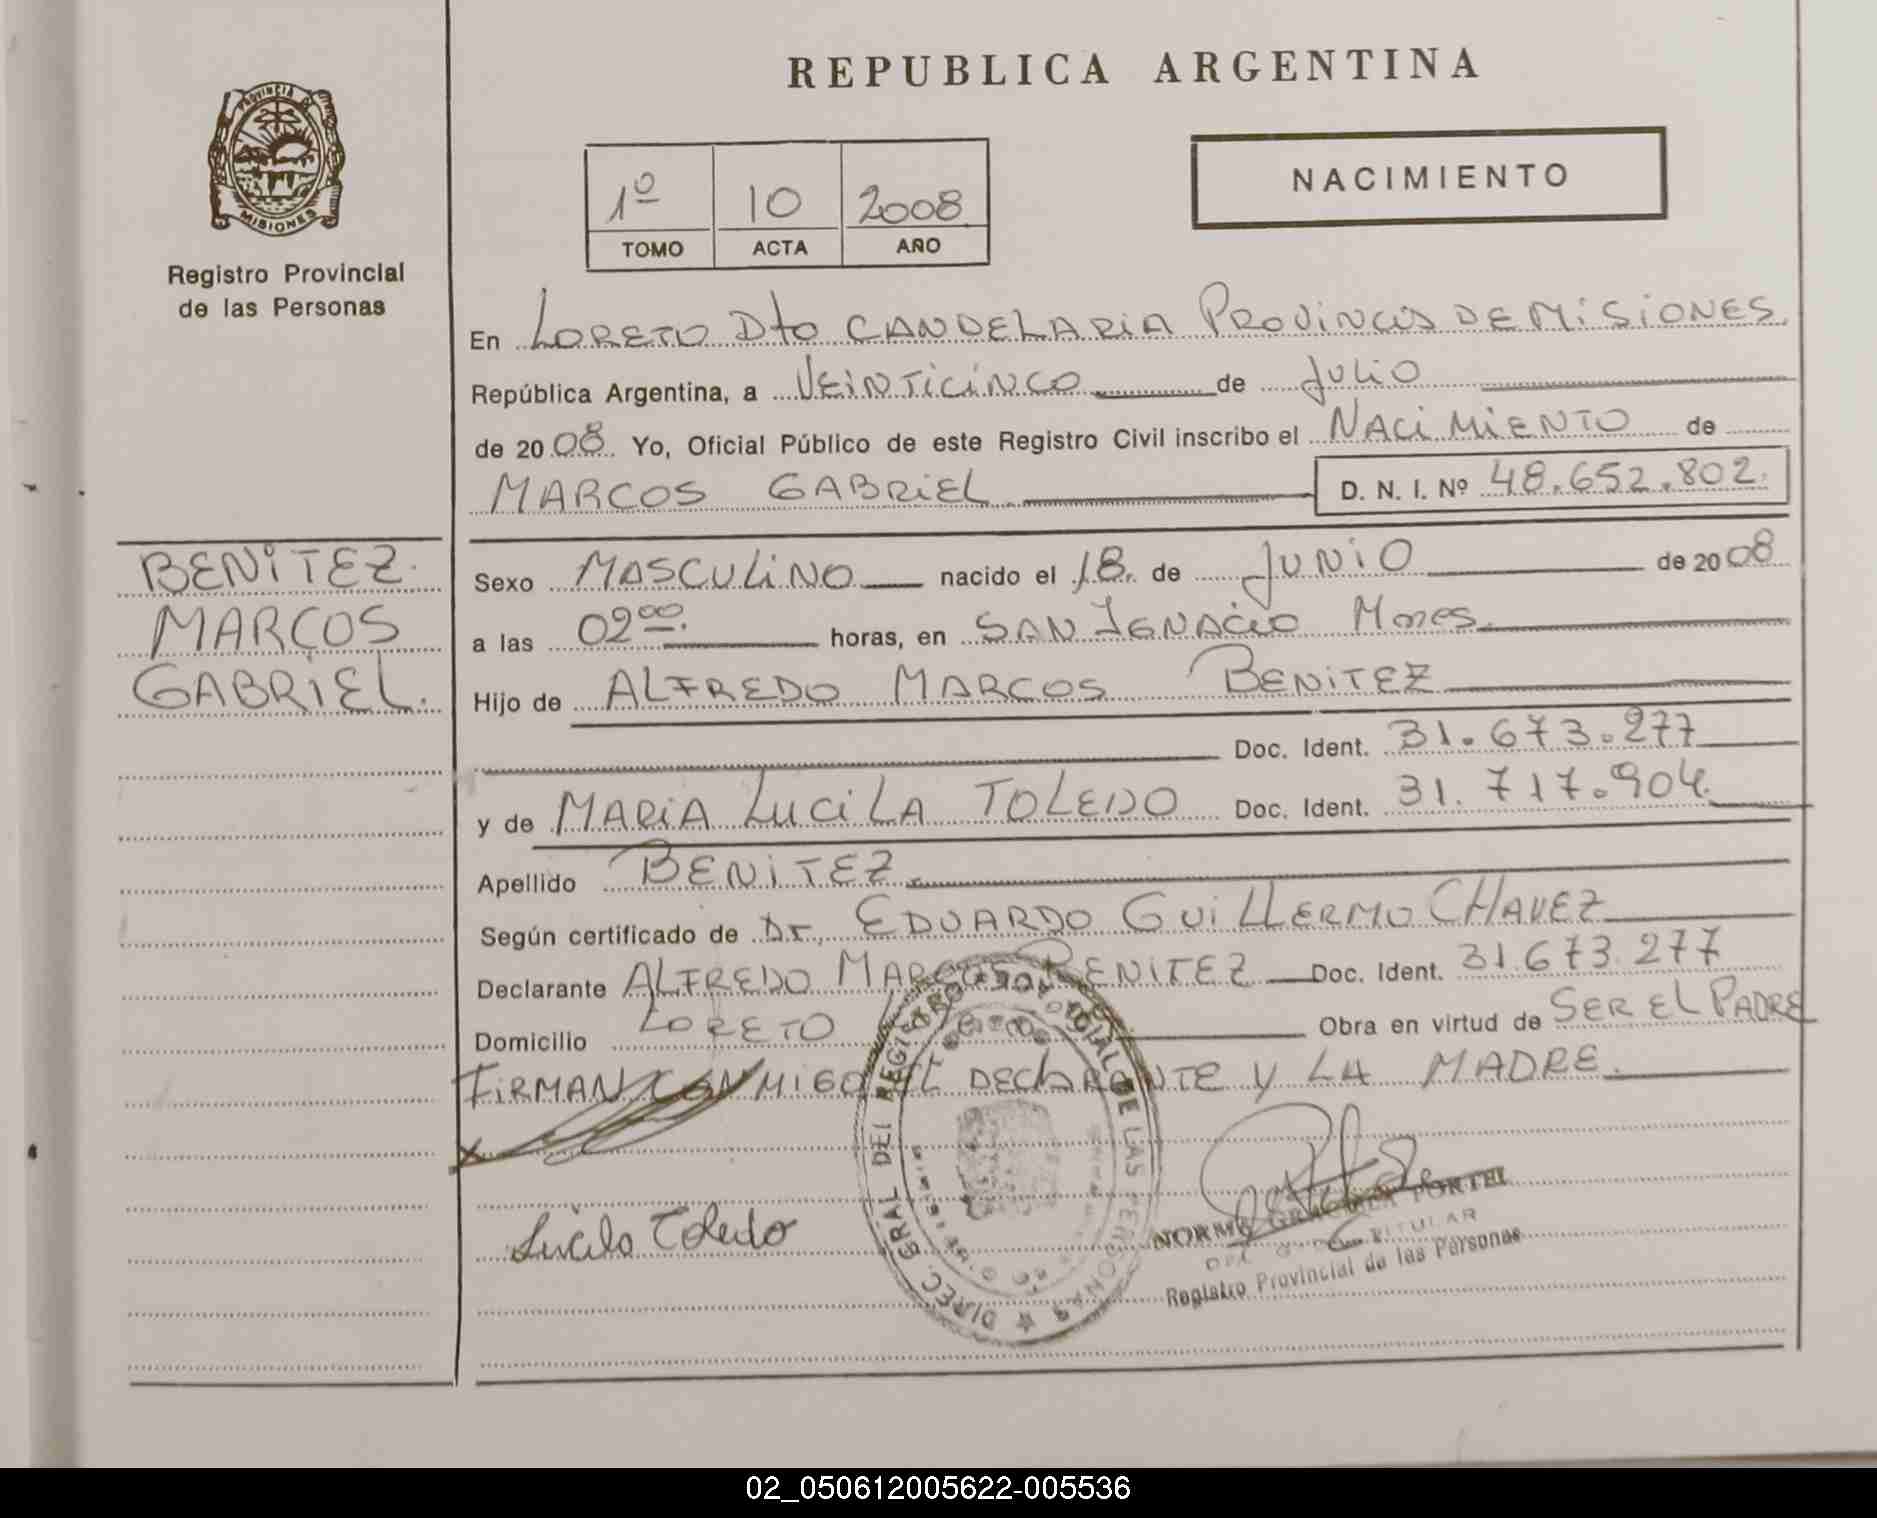 REPUBLICA ARGENTINA
PROVINCIA DE
MISIONES
Registro Provincial
de las Personas
1º 10 2008
TOMO ACTA AÑO
NACIMIENTO
En LORETO Dto CANDELARIA PROVINCIA DE MISIONES
República Argentina, a VEINTICINCO de JULIO
de 2008 Yo, Oficial Público de este Registro Civil inscribo el NACIMIENTO de
MARCOS GABRIEL D. N. I. Nº 48.652.802.
BENITEZ.
MARCOS
GABRIEL.
Sexo MASCULINO nacido el 18. de JUNIO de 2008
a las 02⁰⁰. horas, en SAN IGNACIO Mnes.
Hijo de ALFREDO MARCOS BENITEZ
Doc. Ident. 31.673.277
y de MARIA LUCILA TOLEDO Doc. Ident. 31.717.904.
Apellido BENITEZ.
Según certificado de Dr. EDUARDO GUILLERMO CHAVEZ
Declarante ALFREDO MARCOS BENITEZ Doc. Ident. 31.673.277
Domicilio LORETO Obra en virtud de SER EL PADRE
FIRMAN CONMIGO EL DECLARANTE Y LA MADRE.
Lucila Toledo
DIREC. GRAL DEL REGISTRO PROVINCIAL DE LAS PERSONAS
NORMA GRACIELA PORTEL
TITULAR
Registro Provincial de las Personas
02_050612005622-005536